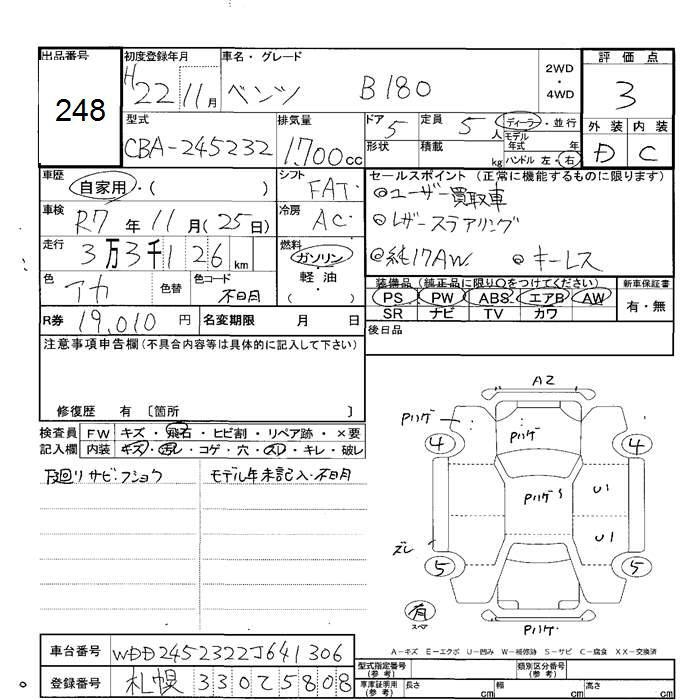 出品番号 初度登録年月 車名・グレード 評価点
248 H22 11月 ベンツ B180 2WD・4WD 3
型式 排気量 ドア 5 定員 5人 ディーラー・並行 外装 内装
CBA-245232 1,700cc 形状 積載 kg モデル年式 年 ハンドル 左・右 D C
車歴 自家用・( ) シフト FAT セールスポイント (正常に機能するものに限ります)
◎ユーザー買取車
車検 R7年11月(25日) 冷房 AC ◎レザーステアリング
走行 3万3千126km 燃料 ガソリン・軽油・( ) ◎純17AW ◎キーレス
色 アカ 色替 色コード 不明 装備品 (純正品に限り○をつけてください) 新車保証書
PS PW ABS エアB AW 有・無
SR ナビ TV カワ
R券 19,010円 名変期限 月 日 後日品
注意事項申告欄(不具合内容等は具体的に記入して下さい)
修復歴 有 〔箇所 〕
検査員 FW キズ・飛石・ヒビ割・リペア跡・×要
記入欄 内装 キズ・ヨゴレ・コゲ・穴・スレ・キレ・破レ
下回りサビ・フショウ モデル年未記入・不明
A2
Pハゲ Pハゲ
4 4
Pハゲ U1
ズレ U1
5 5
有
スペア
Pハゲ
A-キズ E-エクボ U-凹み W-補修跡 S-サビ C-腐食 XX-交換済
車台番号 WDD2452322J641306 型式指定番号(参考) 類別区分番号(参考)
登録番号 札幌 330 て 5808 車庫証明用(参考) 長さ cm 幅 cm 高さ cm